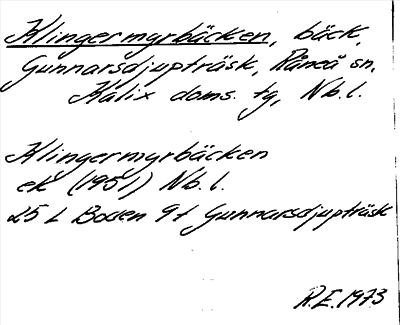 Klingermyrbäcken, bäck,
Gunnarsdjupträsk, Råneå sn,
Kalix doms. tg, Nb. l.
Klingermyrbäcken
ek (1951) Nb. l.
25 L Boden 9 f Gunnarsdjupträsk
R.E. 1973